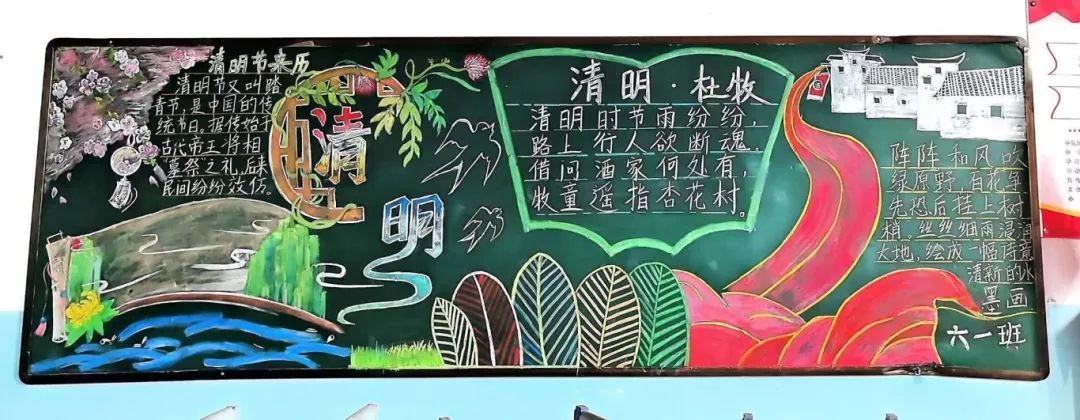 清明节来历
清明节又叫踏
青节，是中国的传
统节日。据传始于
古代帝王将相
“墓祭”之礼，后来
民间纷纷效仿。
清
明
清明·杜牧
清明时节雨纷纷，
路上行人欲断魂。
借问酒家何处有，
牧童遥指杏花村。
阵阵和风吹
绿原野，百花争
先恐后挂上树
梢。丝丝细雨浸润
大地，绘成一幅诗意
清新的水
墨画
六一班